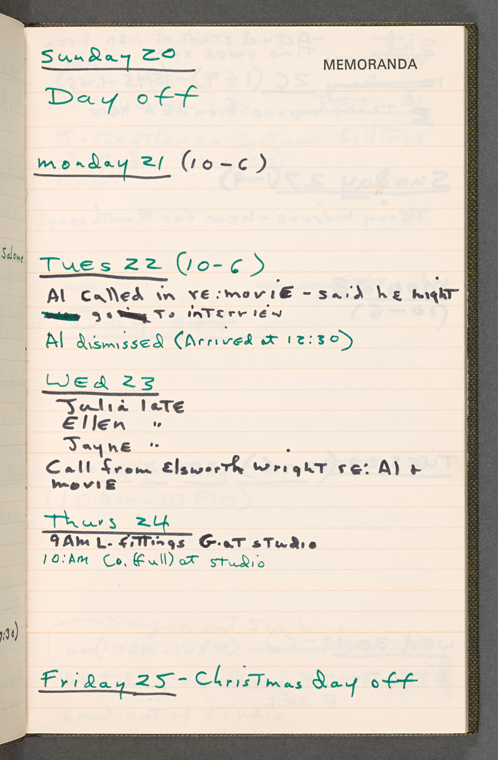 Sunday 20
MEMORANDA
Day off
monday 21 (10-6)
Salome
Tues 22 (10-6)
Al Called in re:movie - said he might
go to interview
Al dismissed (Arrived at 12:30)
Wed 23
Julia late
Ellen "
Jayne "
Call from Elsworth Wright re: Al +
movie
Thurs 24
9AM L. fittings G. at studio
10:AM Co. (full) at studio
7:30)
Friday 25 - Christmas day off